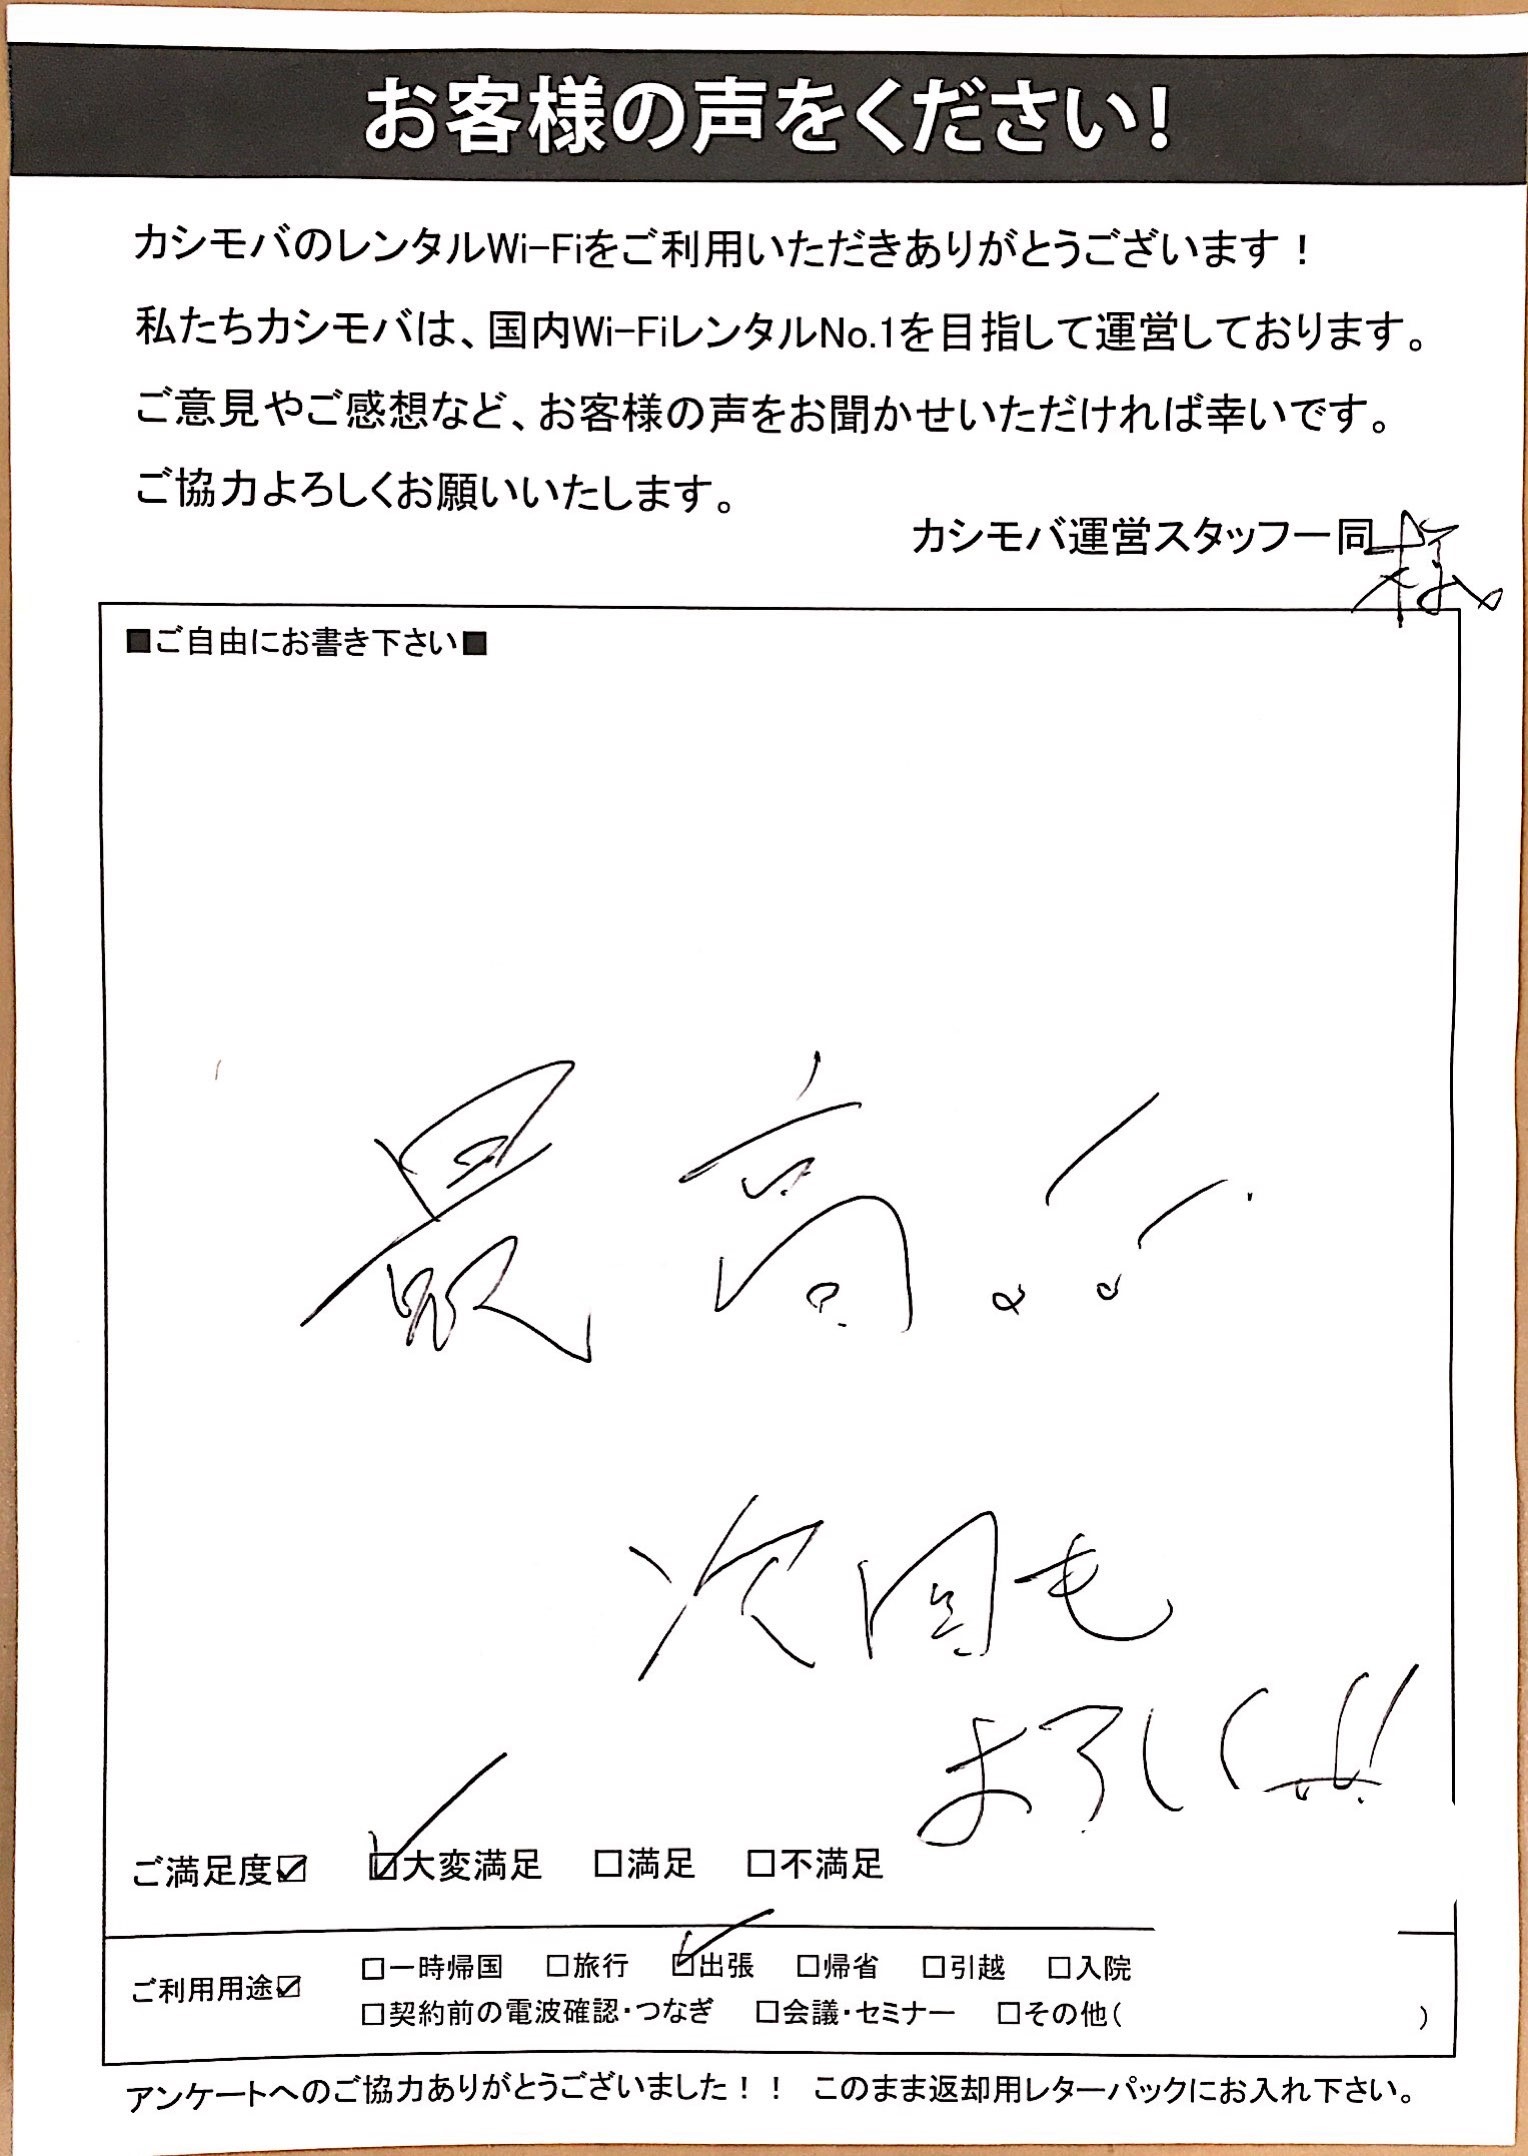 お客様の声をください！
カシモバのレンタルWi-Fiをご利用いただきありがとうございます！
私たちカシモバは、国内Wi-FiレンタルNo.1を目指して運営しております。
ご意見やご感想など、お客様の声をお聞かせいただければ幸いです。
ご協力よろしくお願いいたします。
カシモバ運営スタッフ一同様
■ご自由にお書き下さい■
最高！！
次回も
よろしく!!
ご満足度☑ ☑大変満足 □満足 □不満足
ご利用用途☑ □一時帰国 □旅行 ☑出張 □帰省 □引越 □入院
□契約前の電波確認・つなぎ □会議・セミナー □その他( )
アンケートへのご協力ありがとうございました！！ このまま返却用レターパックにお入れ下さい。